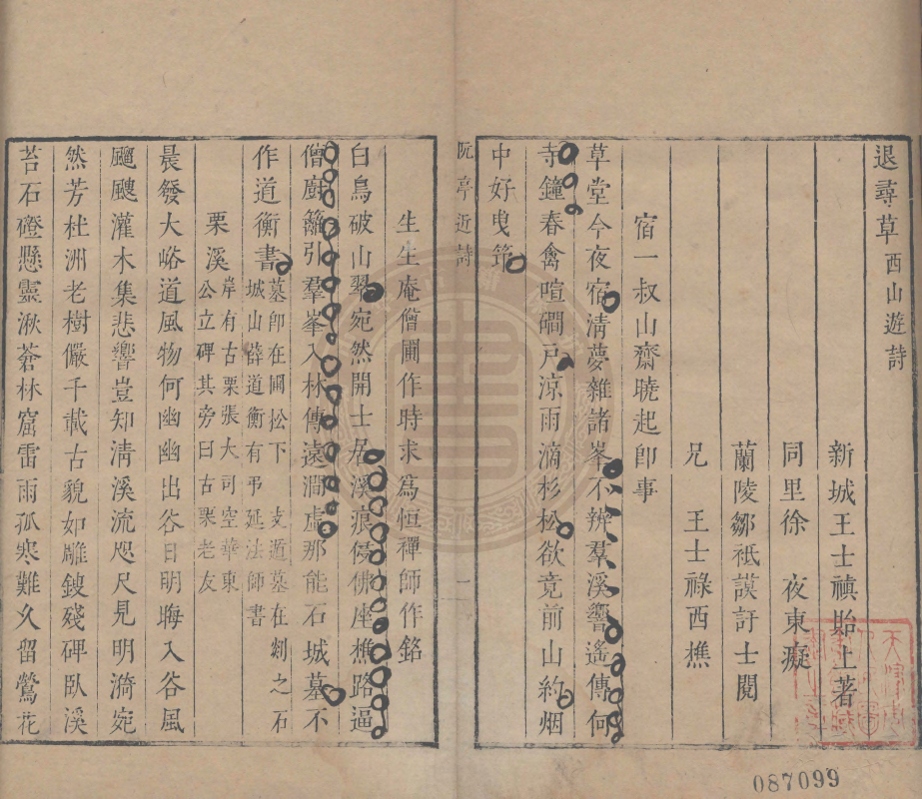 退尋草 西山遊詩
新城王士禛貽上著
同里徐 夜東癡
蘭陵鄒祗謨訏士閱
兄 王士祿西樵
宿一叔山齋曉起即事
草堂今夜宿清夢雜諸峯不辨羣溪響遙傳何
寺鐘春禽喧磵戸涼雨滴杉松欲竟前山約烟
中好曳筇
阮亭近詩
一
生生庵僧圃作時求為恒禪師作銘
白鳥破山翠宛然開士居溪痕侵佛座樵路逼
僧廚籬引羣峯入林傳遠澗虛那能石城墓不
作道衡書 墓即在圃松下 支遁墓在剡之石
城山薛道衡有弔延法師書
栗溪 岸有古栗張大司空華東
公立碑其旁曰古栗老友
晨發大峪道風物何幽幽出谷日明晦入谷風
飀飀灌木集悲響豈知清溪流咫尺見明漪宛
然芳杜洲老樹儼千載古貌如雕鎪殘碑臥溪
苔石磴懸靈湫蒼林窟雷雨孤寒難久留鶯花
087099